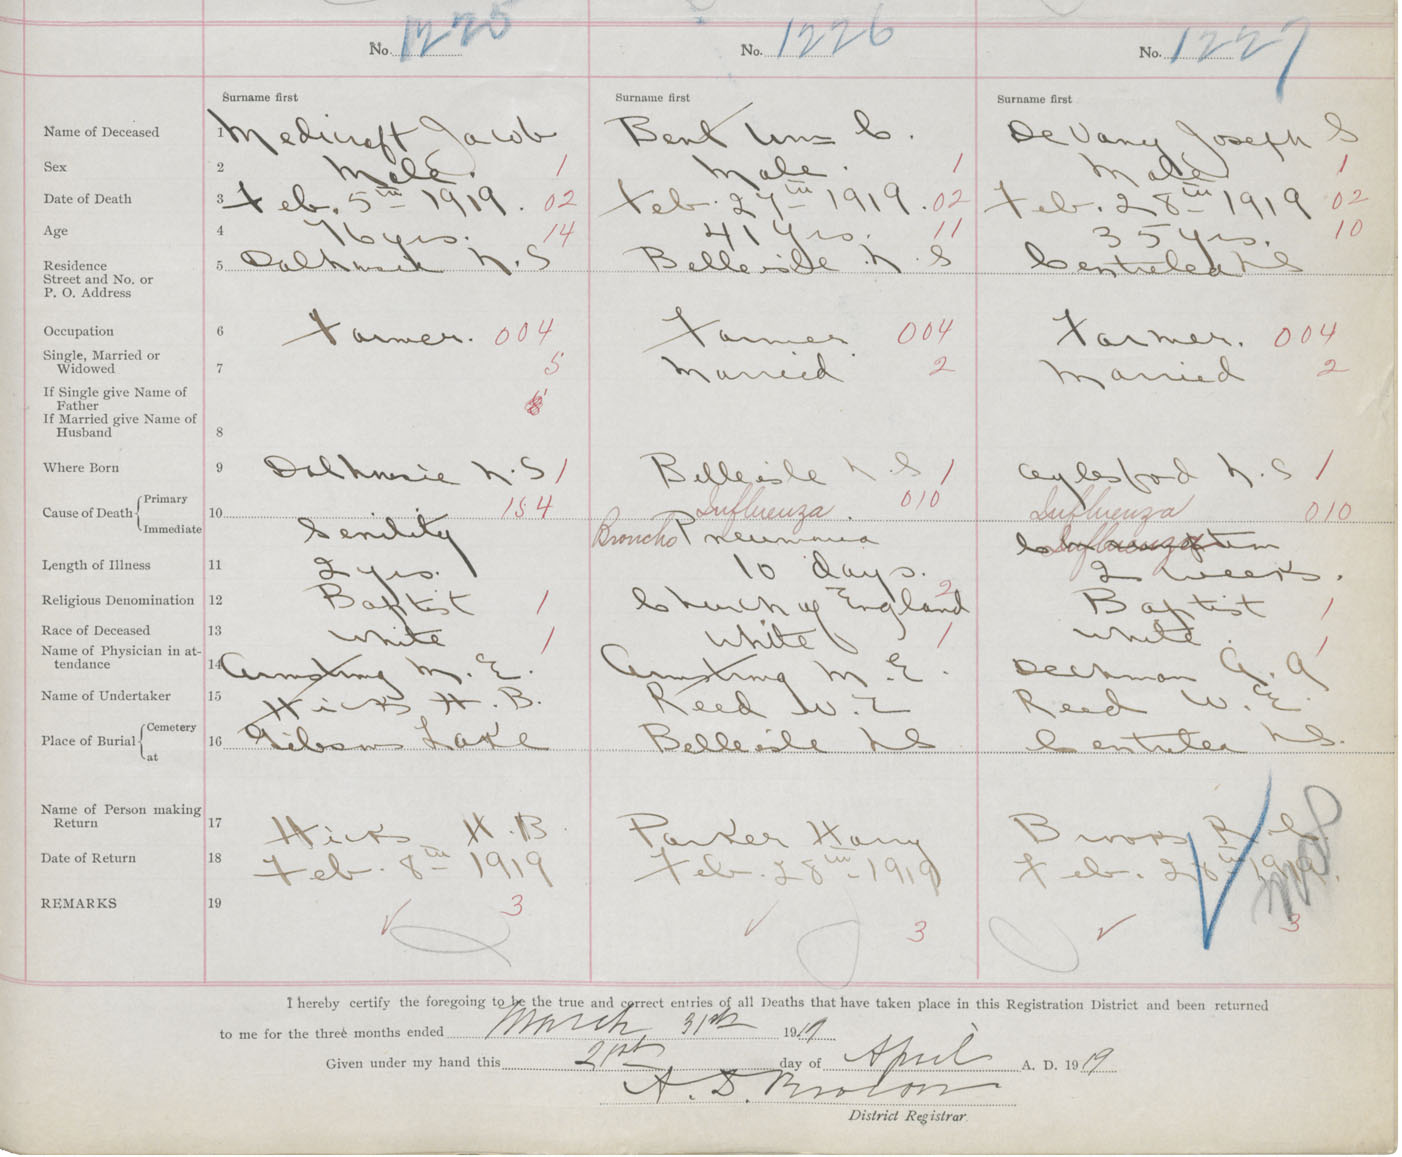 No. 1225 No. 1226 No. 1227
Surname first Surname first Surname first
Name of Deceased 1 Medicraft Jacob Bent Wm C. DeVany Joseph S
Sex 2 Male. 1 Male. 1 Male 1
Date of Death 3 Feb. 5th 1919. 02 Feb. 27th 1919. 02 Feb. 28th 1919 02
Age 4 76 yrs. 14 41 yrs. 11 35 yrs. 10
Residence 5 Dalhousie N.S Belleisle N.S Centrelea NS
Street and No. or
P. O. Address
Occupation 6 Farmer. 004 Farmer 004 Farmer. 004
Single, Married or
Widowed 7 5 Married 2 Married 2
If Single give Name of
Father
If Married give Name of
Husband 8
Where Born 9 Dalhousie N.S 1 Belleisle N.S 1 Aylesford N.S 1
Cause of Death { Primary 10 154 Influenza. 010 Influenza 010
Immediate Senility Broncho Pneumonia
Length of Illness 11 2 yrs. 10 days. 2 weeks.
Religious Denomination 12 Baptist 1 Church of England 2 Baptist 1
Race of Deceased 13 White 1 White 1 White. 1
Name of Physician in at-
tendance 14 Armstrong M. E. Armstrong M. E. Deckman A. A
Name of Undertaker 15 Hicks H. B. Reed W. E Reed W. E.
Place of Burial { Cemetery 16 Gibsons Lake Belleisle NS Centrelea NS.
at
Name of Person making
Return 17 Hicks H. B. Parker Harry Brooks R. S.
Date of Return 18 Feb. 8th 1919 Feb. 28th 1919 Feb. 28th 1919.
REMARKS 19 3 3 3
I hereby certify the foregoing to be the true and correct entries of all Deaths that have taken place in this Registration District and been returned
to me for the three months ended March 31st 1919
Given under my hand this 21st day of April A. D. 1919
A. D. Brown
District Registrar.